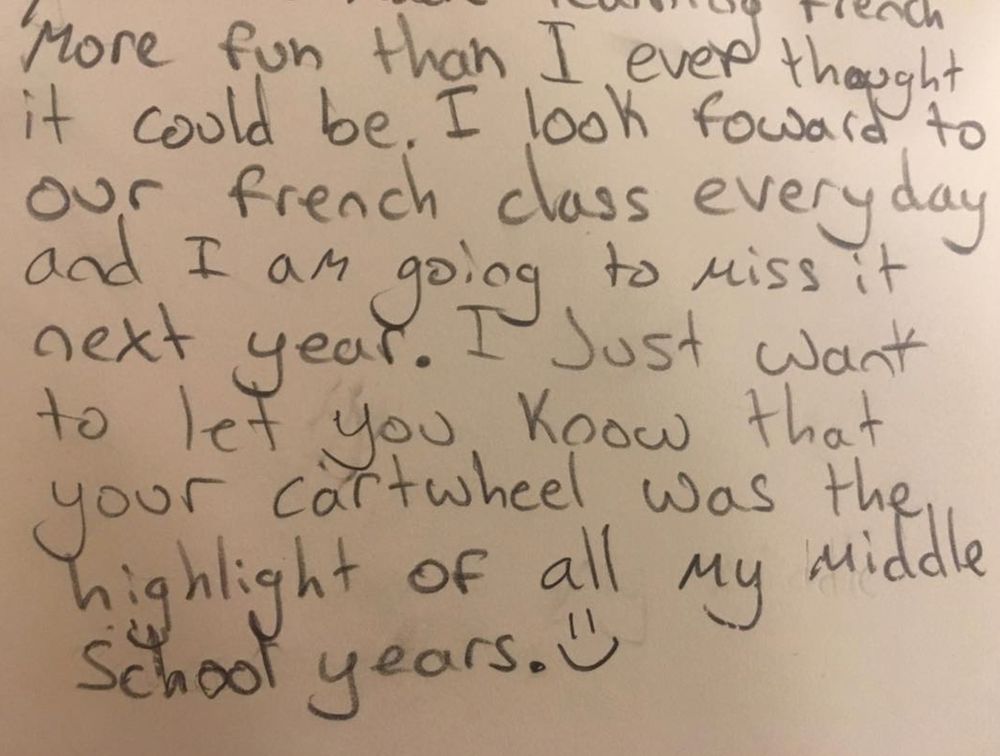 learning french
More fun than I ever thought
it could be. I look foward to
our french class everyday
and I am going to miss it
next year. I Just want
to let you know that
your cartwheel was the
highlight of all my middle
School years. :)